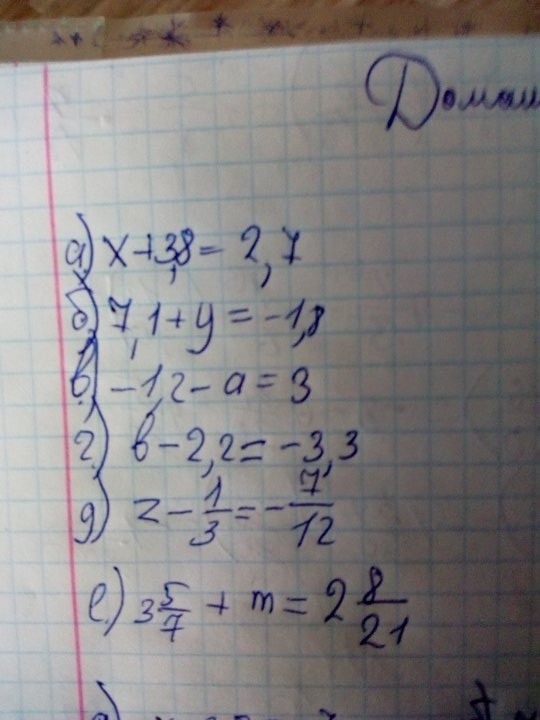 а) x+3,8 = 2,7
б) 7,1+y = -1,8
в) -1,2 - a = 3
г) b - 2,2 = -3,3
д) z - 1/3 = - 7/12
е) 3 5/7 + m = 2 8/21